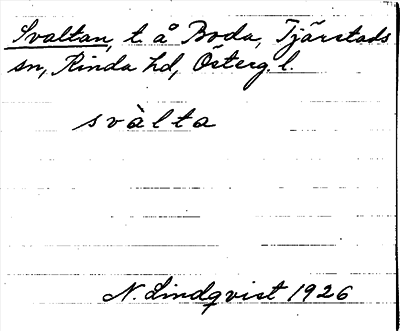 Svaltan, t. å Boda, Tjärstads
sn, Kinda hd, Österg. l.
svàlta
N. Lindqvist 1926